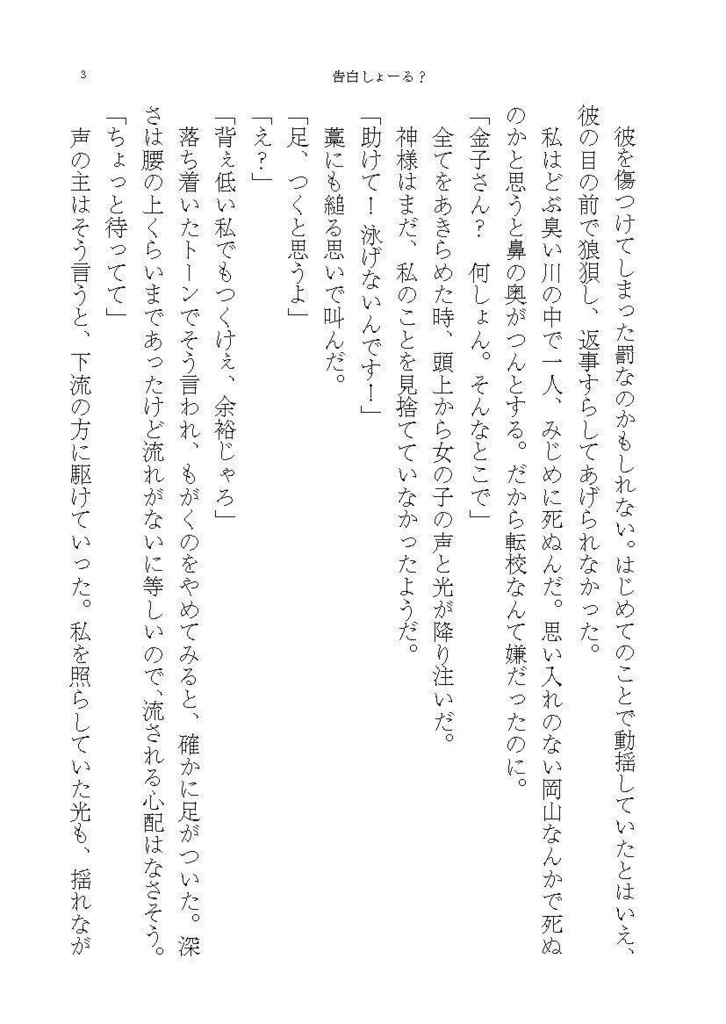 3
告白しょーる？
　彼を傷つけてしまった罰なのかもしれない。はじめてのことで動揺していたとはいえ、
彼の目の前で狼狽し、返事すらしてあげられなかった。
　私はどぶ臭い川の中で一人、みじめに死ぬんだ。思い入れのない岡山なんかで死ぬ
のかと思うと鼻の奥がつんとする。だから転校なんて嫌だったのに。
「金子さん？　何しょん。そんなとこで」
　全てをあきらめた時、頭上から女の子の声と光が降り注いだ。
　神様はまだ、私のことを見捨てていなかったようだ。
「助けて！　泳げないんです！」
　藁にも縋る思いで叫んだ。
「足、つくと思うよ」
「え？」
「背ぇ低い私でもつくけぇ、余裕じゃろ」
　落ち着いたトーンでそう言われ、もがくのをやめてみると、確かに足がついた。深
さは腰の上くらいまであったけど流れがないに等しいので、流される心配はなさそう。
「ちょっと待ってて」
　声の主はそう言うと、下流の方に駆けていった。私を照らしていた光も、揺れなが